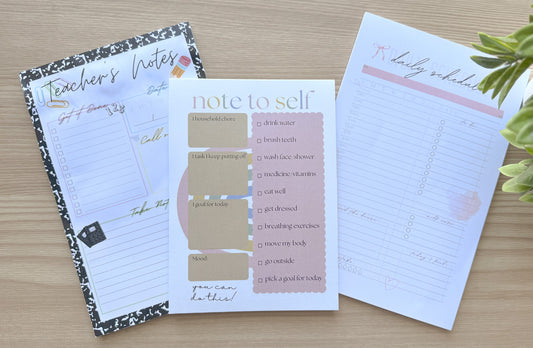 Teacher's Notes
Get it Done
Take Not
note to self
1 household chore
1 task I keep putting off
1 goal for today
Mood:
you can
do this!
drink water
brush teeth
wash face/shower
medicine/vitamins
eat well
get dressed
breathing exercises
move my body
go outside
pick a goal for today
daily schedule